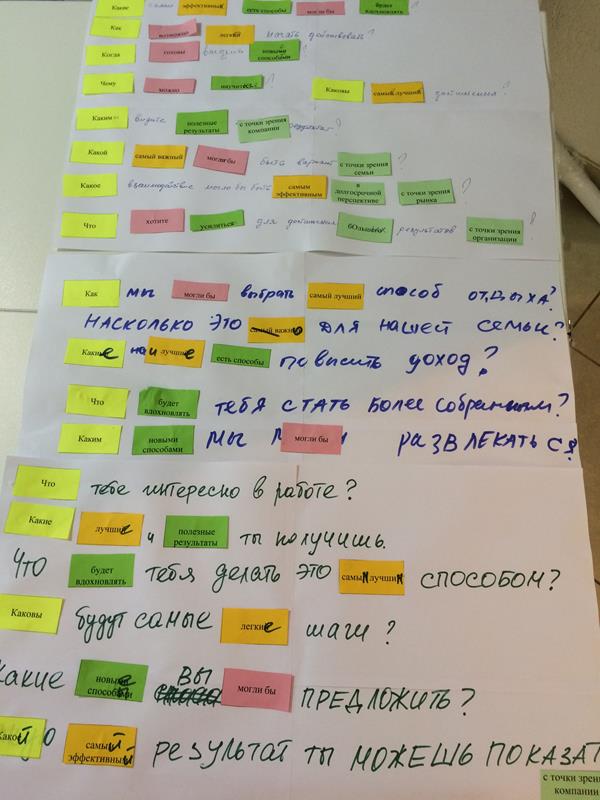 Какие самые эффективные есть способы могли бы будет вдохновлять ?
Как возможно легкий начать действовать?
Когда готовы новыми способами ?
Чему можно научитесь ?
Каковы самый лучший достижения ?
Каким видите полезные результаты с точки зрения компании результат?
Какой самый важный могли бы быть вариант с точки зрения семьи ?
Какое взаимодействие могло бы быть самым эффективным в долгосрочной перспективе с точки зрения рынка ?
Что хотите усилиться для достижения больших результатов с точки зрения организации !
Как мы могли бы выбрать самый лучший способ отдыха?
Насколько это самый важны о для нашей семьи?
Какие наи лучшие есть способы повысить доход?
Что будет вдохновлять тебя стать более собранным?
Каким новыми способами мы могли бы развлекаться?
Что тебе интересно в работе?
Какие лучшие и полезные результаты ты получишь.
Что будет вдохновлять тебя делать это самым лучшим способом?
Каковы будут самые легкие шаги?
Какие новые способы вы могли бы предложить?
Какой самый эффективный результат ты можешь показат
с точки зрения компании